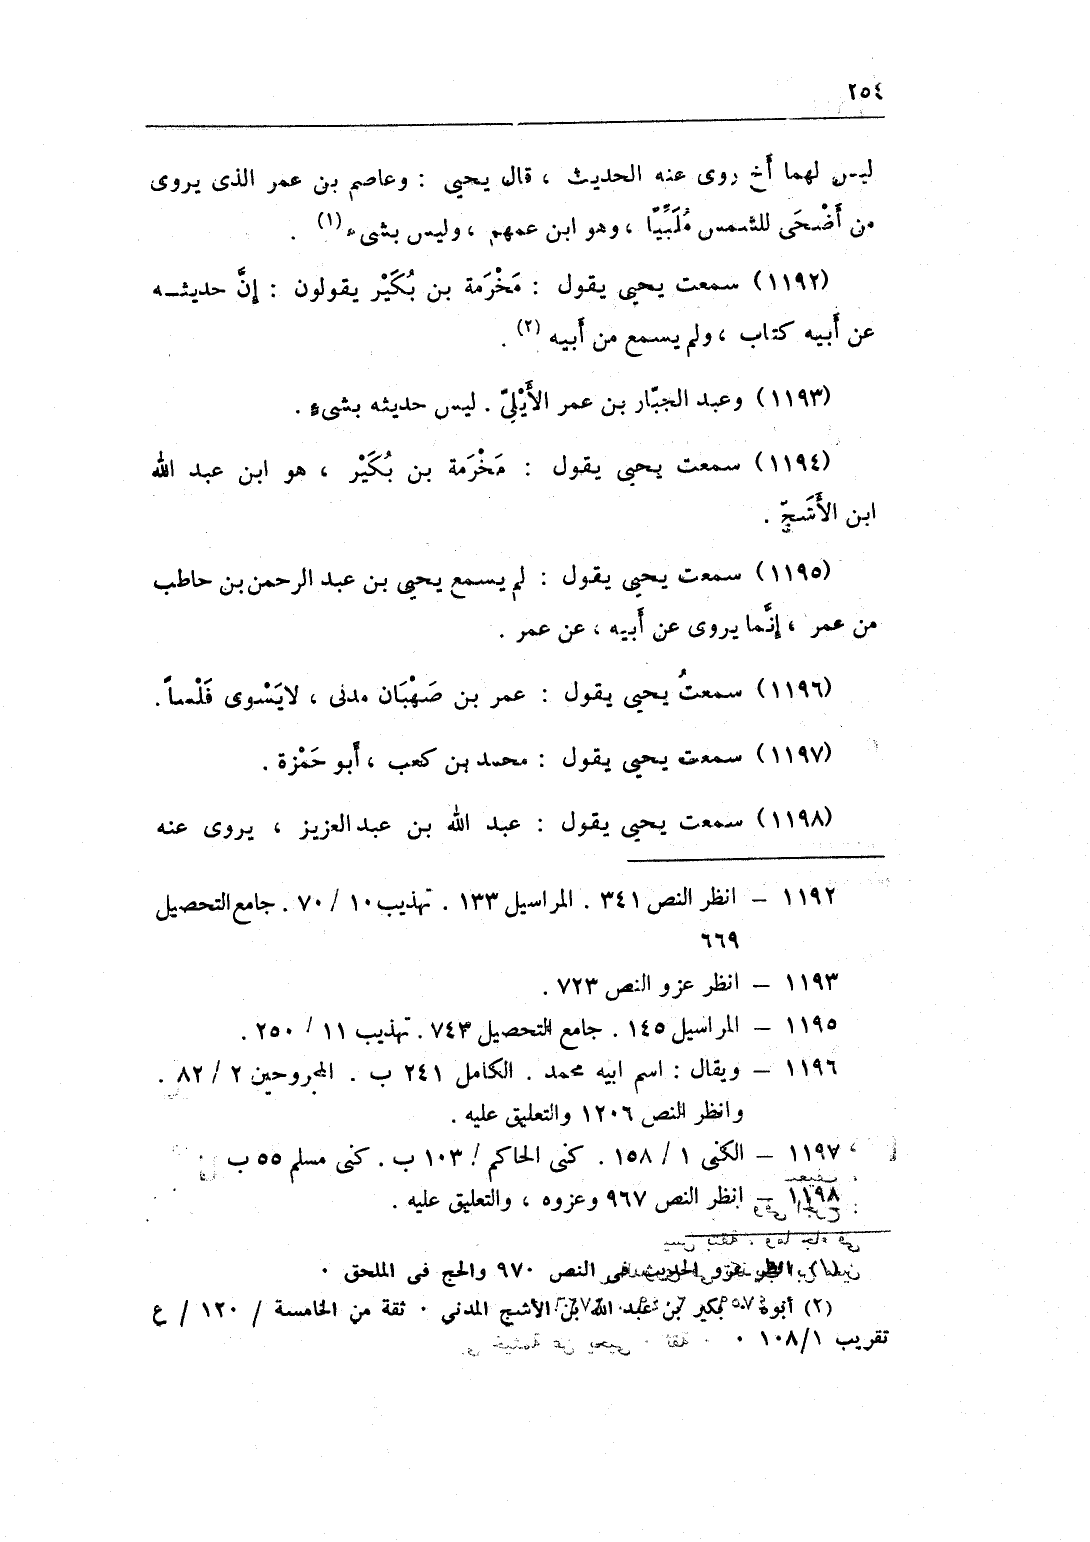 ٢٥٤
ليس لهما أَخ روى عنه الحديث ، قال يحيى : وعاصم بن عمر الذى يروى
من أَضْحَى للشمس مُلَبِّيًا ، وهو ابن عمهم ، وليس بشىء (١) .
(١١٩٢) سمعت يحيى يقول : مَخْرَمة بن بُكَيْر يقولون : إنَّ حديثـه
عن أَبيه كتاب ، ولم يسمع من أَبيه (٢) .
(١١٩٣) وعبد الجبّار بن عمر الأَيْلِيّ . ليس حديثه بشىءٍ .
(١١٩٤) سمعت يحيى يقول : مَخْرَمة بن بُكَيْر ، هو ابن عبد الله
ابن الأَشَجّ .
(١١٩٥) سمعت يحيى يقول : لم يسمع يحيى بن عبد الرحمن بن حاطب
من عمر ، إنَّما يروى عن أَبيه ، عن عمر .
(١١٩٦) سمعتُ يحيى يقول : عمر بن صَهْبَان مدنى ، لايَسْوى فَلْساً .
(١١٩٧) سمعت يحيى يقول : محمد بن كعب ، أَبو حَمْزة .
(١١٩٨) سمعت يحيى يقول : عبد الله بن عبدالعزيز ، يروى عنه
١١٩٢ – انظر النص ٣٤١ . المراسيل ١٣٣ . تهذيب ١٠ / ٧٠ . جامع التحصيل
٦٦٩
١١٩٣ – انظر عزو النص ٧٢٣ .
١١٩٥ – المراسيل ١٤٥ . جامع التحصيل ٧٤٣ . تهذيب ١١ / ٢٥٠ .
١١٩٦ – ويقال : اسم ابيه محمد . الكامل ٢٤١ ب . المجروحين ٢ / ٨٢ .
وانظر النص ١٢٠٦ والتعليق عليه .
١١٩٧ – الكنى ١ / ١٥٨ . كنى الحاكم / ١٠٣ ب . كنى مسلم ٥٥ ب .
١١٩٨ – انظر النص ٩٦٧ وعزوه ، والتعليق عليه .
(١) انظر عزو الحديث فى النص ٩٧٠ والحج فى الملحق ٠
(٢) أبوه بكير بن عبد الله بن الأشج المدني ٠ ثقة من الخامسة / ١٢٠ / ع
تقريب ١٠٨/١ ٠